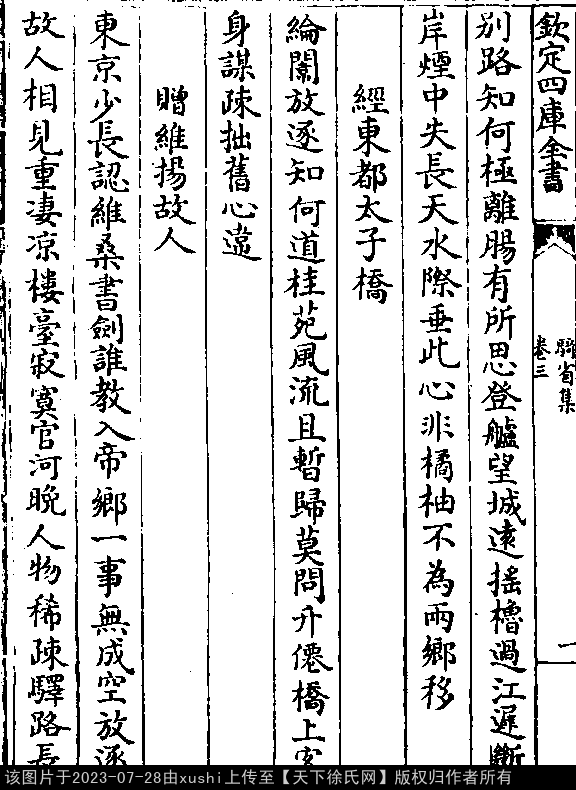 欽定四庫全書
騎省集
卷三
一
别路知何極離腸有所思登艫望城遠搖櫓過江遲斷
岸煙中失長天水際垂此心非橘柚不為兩鄉移
經東都太子橋
綸闈放逐知何道桂苑風流且暫歸莫問升僊橋上客
身謀疎拙舊心違
贈維揚故人
東京少長認維桑書劍誰教入帝鄉一事無成空放逐
故人相見重凄凉樓臺寂寞官河晚人物稀疎驛路長
该图片于2023-07-28由xushi上传至【天下徐氏网】版权归作者所有